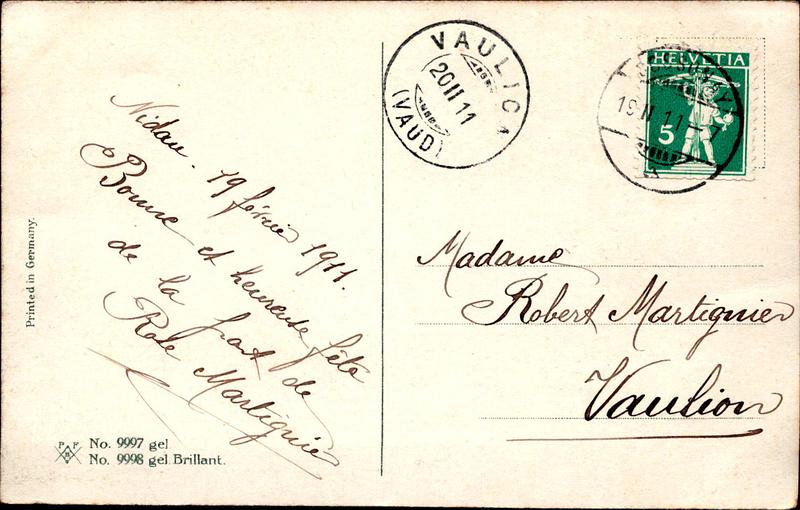 Nidau. 19 février 1911.
Bonne et heureuse fête
de la part de
Rose Martignier
Printed in Germany.
P F
B
No. 9997 gel.
No. 9998 gel. Brillant.
VAULION
20 II 11
(VAUD)
HELVETIA
5
19 II 11 - 7
Madame
Robert Martignier
Vaulion